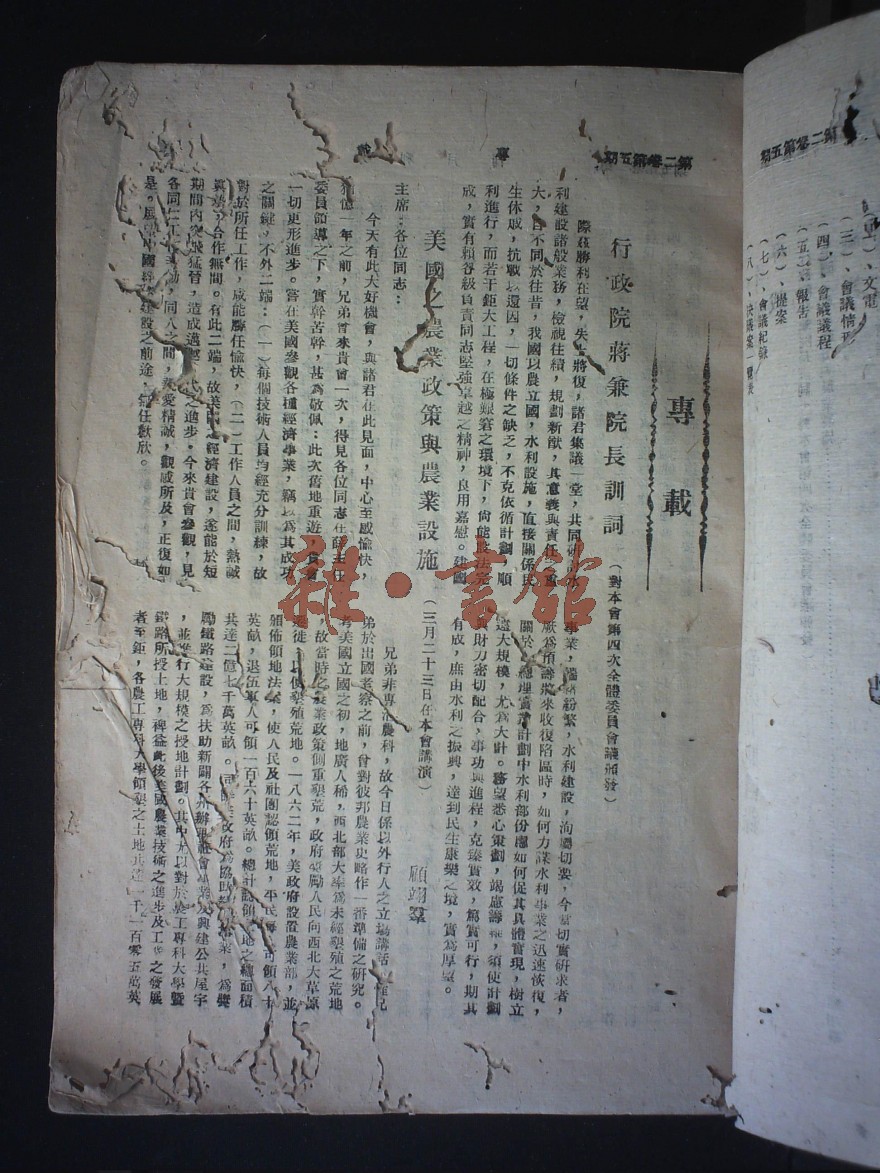 第二卷第五期
專載
專載
行政院蔣兼院長訓詞
(對本會第四次全體委員會議頒發)
際茲勝利在望,失土將復,諸君集議一堂,共同研水
利建設諸般業務,檢視往績,規劃新猷,其意義與責任之重
大,自不同於往昔,我國以農立國,水利設施,直接關係民
生休戚,抗戰以還因,一切條件之缺乏,不克依循計劃,順
利進行,而若干鉅大工程,在極艱窘之環境下,尙能設法完
成,實有賴各級負責同志堅強卓越之精神,良用嘉慰。建國
事業,紛繁,水利建設,洵屬切要,今當切實硏求者,
厥爲預籌將來收復陷區時,如何力謀水利事業之迅速恢復,
關於總理實計劃中水利部份應如何促其具體實現,樹立
遠大規模,尤爲大計。務望悉心策劃,竭慮籌,須使計劃
財力密切配合,事功與進程,克臻實效,篤實可行,期其
有成,庶由水利之振興,達到民生康樂之境,實爲厚望。
美國之農業政策與農業設施
(三月二十三日在本會講演)
顧翊羣
主席:各位同志:
今天有此大好機會,與諸君在此見面,中心至感愉快,
憶一年之前,兄弟曾來貴會一次,得見各位同志在薛主任
委員領導之下,實幹苦幹,甚爲敬佩:此次舊地重遊,貴會
一切更形進步。嘗在美國參觀各種經濟事業,竊以爲其成功
之關鍵,不外二端:(一)每個技術人員均經充分訓練,故
對於所任工作,咸能勝任愉快,(二)工作人員之間,熱誠
合作無間。有此二端,故美國之經濟建設,遂能於短
期間內突飛猛晉,造成邁代之進步。今來貴會參觀,見
各同仁工作,同人之間,親愛精誠,觀感所及,正復如
是。中國建設之前途,無任歡欣。
兄弟非專治農科,故今日係以外行人之立場講話,
弟於出國考察之前,曾對彼邦農業史略作一番準備之研究。
美國立國之初,地廣人稀,西北部大率爲未經墾殖之荒地
,故當時之農業政策側重墾荒,政府獎勵人民向西北大草原
遷徙,便墾殖荒地。一八六二年,美政府設置農業部,並
頒佈領地法案,使人民及社團認領荒地,平民每可領八十
英畝,退伍軍人可領一百六十英畝。總計認領地之總面積
共達二億七千萬英畝。政府爲協助業,爲獎
勵鐵路建設,爲扶助新闢各州辦理社會事業及興建公共屋宇
,並舉行大規模之授地計劃。其中尤以對於農工專科大學暨
鐵路所授土地,裨益此後美國農業技術之進步及工之發展
者至鉅,各農工專科大學領墾之土地共達一千一百零五萬英
雜·書館
第二卷第五期
、文電
(三)、會議情形
(四)、會議議程
(五)、報告
(六)、提案
(七)、會議紀錄
(八)、決議案一覽表